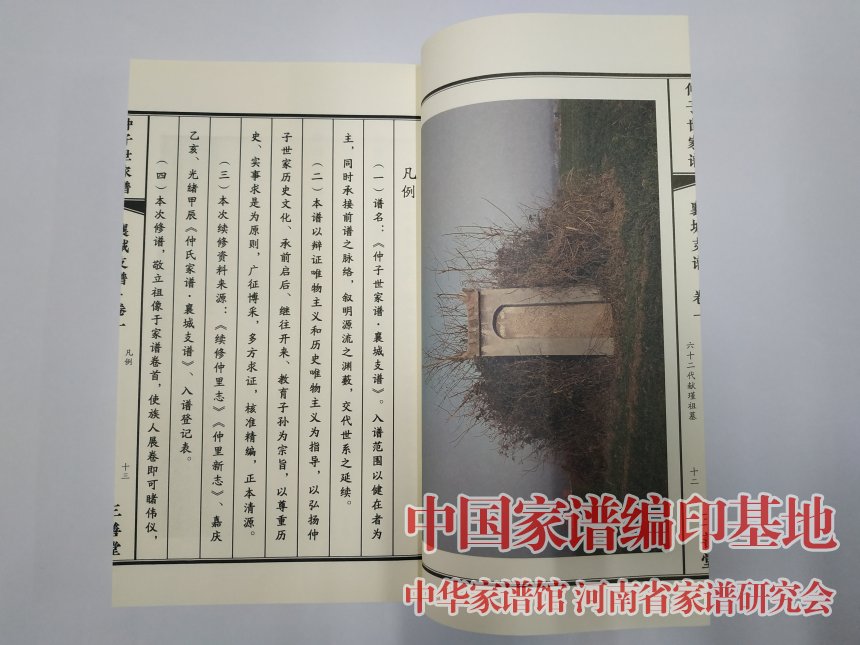 仲子世家谱
襄城支谱
卷一
六十二代献瑾祖墓
十二
三善堂
凡例
（一）谱名：《仲子世家谱·襄城支谱》。入谱范围以健在者为
主，同时承接前谱之脉络，叙明源流之渊薮，交代世系之延续。
（二）本谱以辩证唯物主义和历史唯物主义为指导，以弘扬仲
子世家历史文化、承前启后、继往开来、教育子孙为宗旨，以尊重历
史、实事求是为原则，广征博采，多方求证，核准精编，正本清源。
（三）本次续修资料来源：《续修仲里志》《仲里新志》、嘉庆
乙亥、光绪甲辰《仲氏家谱·襄城支谱》、入谱登记表。
（四）本次修谱，敬立祖像于家谱卷首，使族人展卷即可睹伟仪，
仲子世家谱
襄城支谱·卷一
凡例
十三
三善堂
中国家谱编印基地
中华家谱馆 河南省家谱研究会